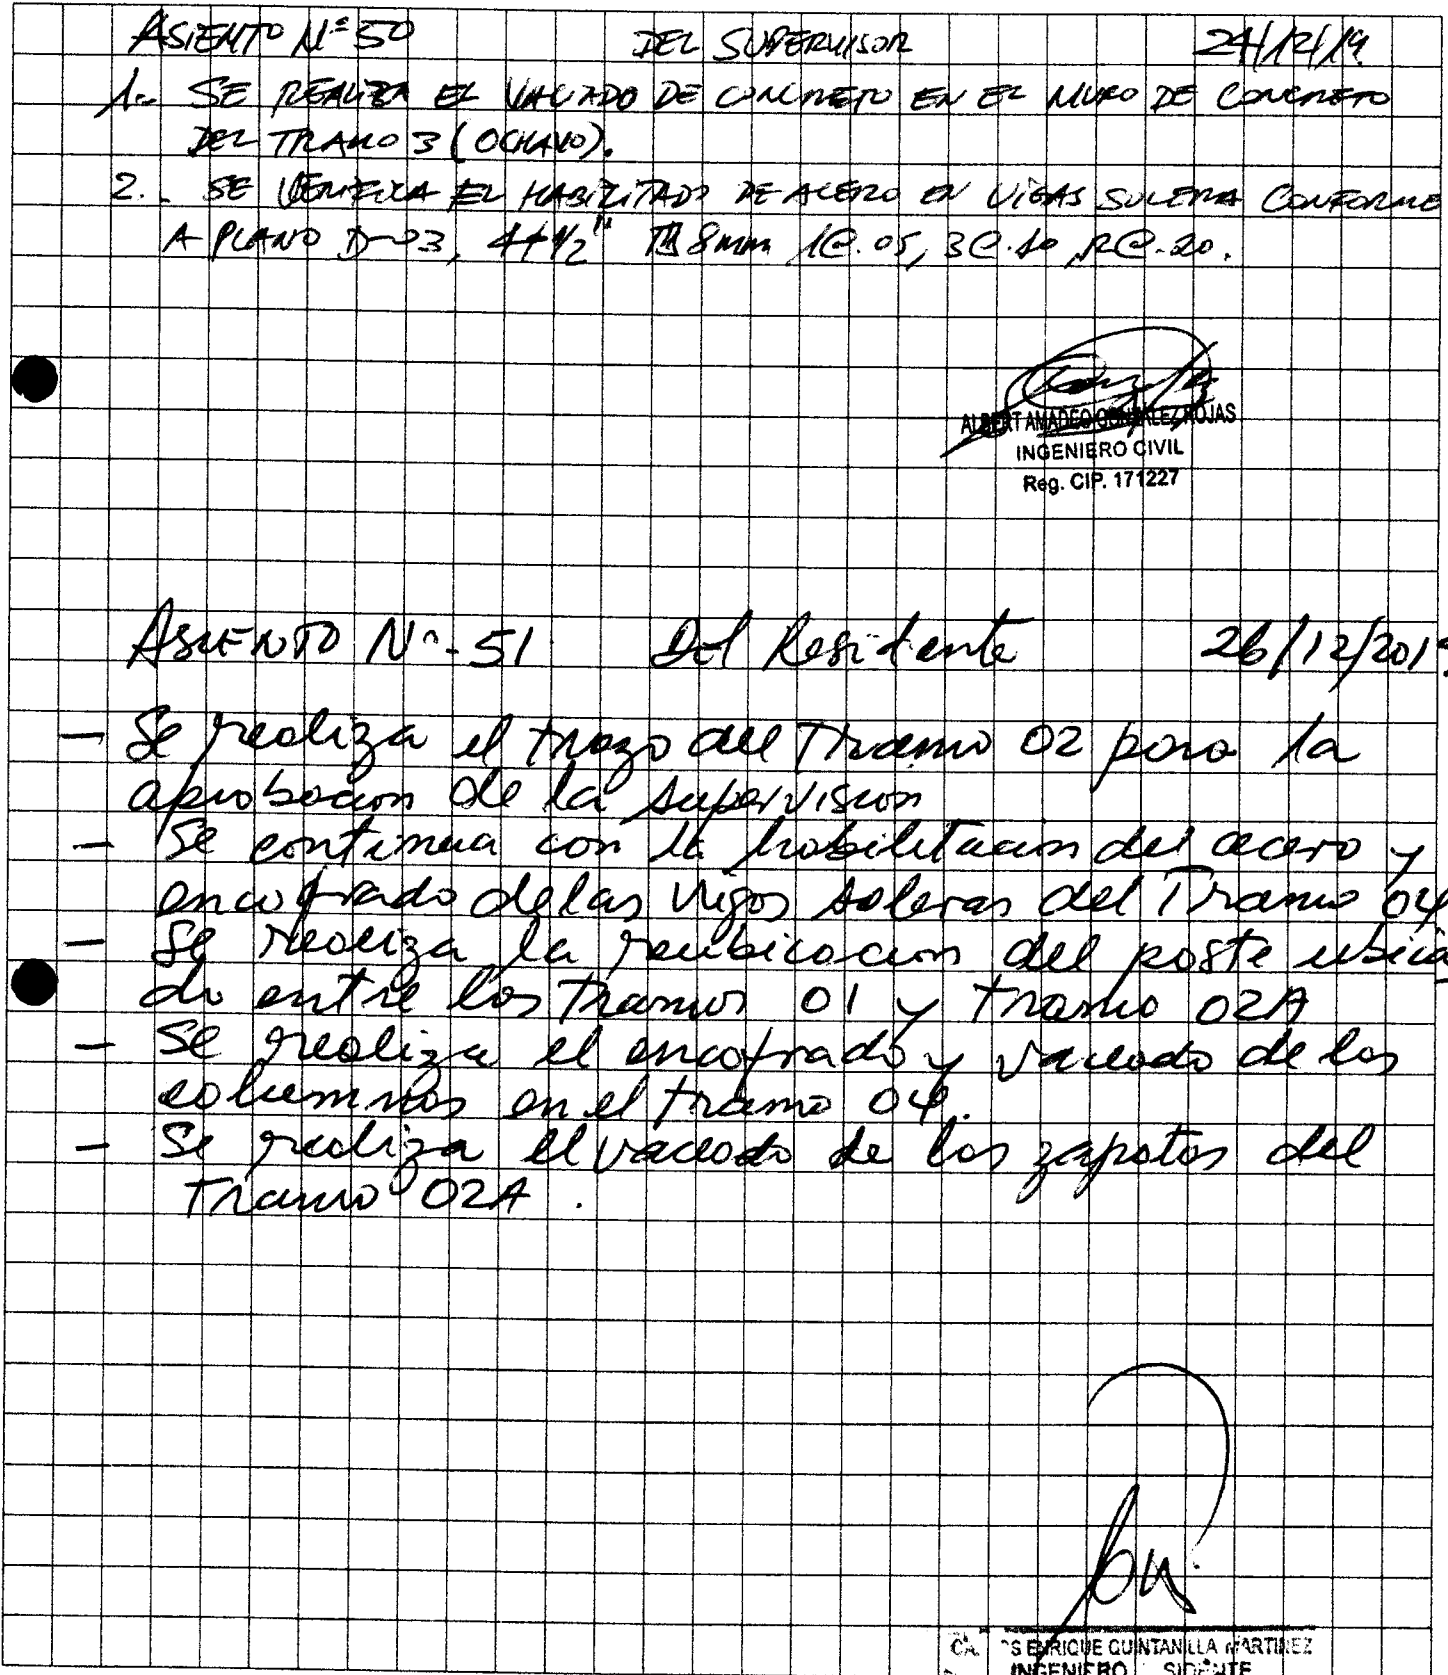 ASIENTO Nº 50 DEL SUPERVISOR 24/12/19
1.- SE REALIZA EL VACIADO DE CONCRETO EN EL MURO DE CONCRETO
DEL TRAMO 3 (OCHAVO).
2.- SE VERIFICA EL HABILITADO DE ACERO EN VIGAS SOLERA CONFORME
A PLANO D-03, 4 1/2" 8mm 1@.05, 3@.10, R@.20.
ALBERT AMADEO GONZALEZ ROJAS
INGENIERO CIVIL
Reg. CIP. 171227
ASIENTO Nº-51 Del Residente 26/12/2019
- Se realiza el trazo del Tramo 02 para la
aprobacion de la supervision
- Se continua con la habilitacion del acero y
encofrado de las vigas soleras del Tramo 04
- Se realiza la reubicacion del poste ubica
do entre los tramos 01 y tramo 02A
- Se realiza el encofrado y vaceado de las
columnas en el tramo 04.
- Se realiza el vaceado de las zapatas del
Tramo 02A.
S ENRIQUE QUINTANILLA MARTINEZ
INGENIERO SIDENTE